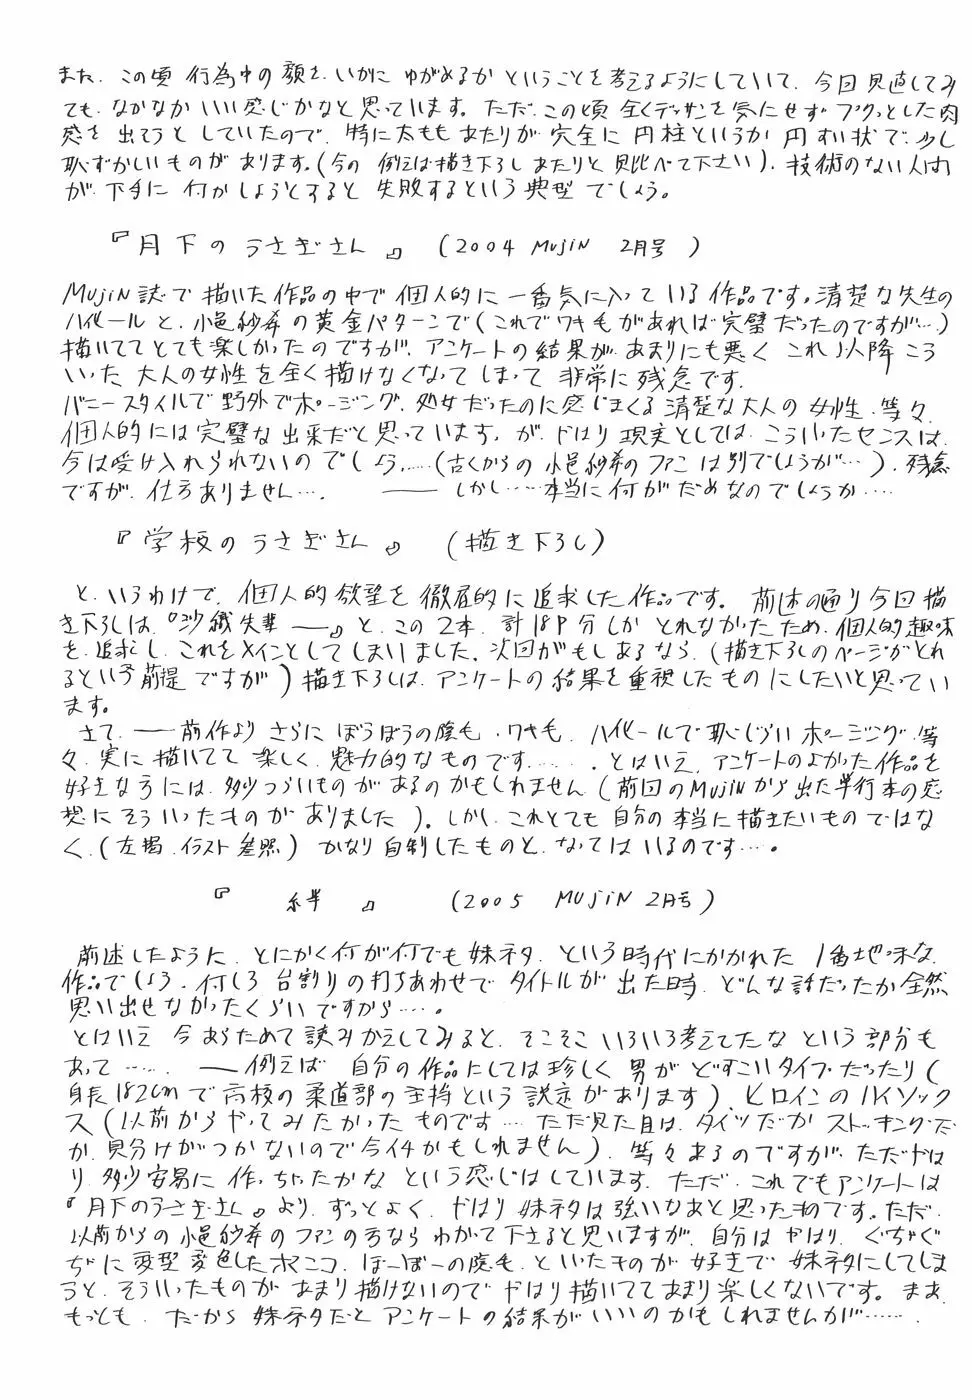 また、この頃 行為中の顔を、いかに ゆがめるか ということを考えるようにしていて、今回 見直してみ
ても、なかなか いい感じかなと 思っています。ただ、この頃 全くデッサンを気にせず プクッとした肉
感を 出そうと していたので、特に太もも あたりが 完全に 円柱というか 円すい状で、少し
恥ずかしいものがあります。(今の 例えば描き下ろし あたりと、見比べて下さい)、技術のない人間
が、下手に 何かしようとすると 失敗するという 典型 でしょう。
『月下のうさぎさん』 (2004 MUJIN 2月号)
MUJIN誌で 描いた作品の中で 個人的に 一番気に入って いる作品です。清楚な先生の
ハイヒールと、小邑紗希の黄金パターンで(これでワキ毛があれば完璧だったのですが…)
描いてて とても楽しかったのですが、アンケートの結果が、あまりにも悪く これ以降 こう
いった 大人の女性を 全く描けなくなって しまって 非常に 残念です。
バニースタイルで 野外でポージング、処女だったのに感じまくる清楚な大人の女性、等々、
個人的には完璧な出来だと思っています。が、やはり 現実としては、こういったセンスは、
今は受け入れられないのでしょう……(古くからの小邑紗希のファンは別でしょうが…)、残念
ですが、仕方ありません…. ―― しかし……本当に何がだめなのでしょうか….
『学校のうさぎさん』 (描き下ろし)
と、いうわけで、個人的欲望を 徹底的に 追求した作品です。前述の通り今回描
き下ろしは、『沙織先輩――』と、この2本、計18P分しか とれなかったため、個人的趣味
を、追求し、これをメインとしてしまいました。次回がもしあるなら、(描き下ろしのページがとれ
るという前提 ですが)描き下ろしは、アンケートの結果を重視したものにしたいと思ってい
ます。
さて、――前作より さらに ぼうぼうの陰毛、ワキ毛、ハイヒールで恥じらいポージング、等
々、実に 描いてて 楽しく、魅力的なものです…….とはいえ、アンケートのよかった作品を
好きな方には、多少つらいものがあるのかもしれません(前回のMUJINから出た単行本の感
想にそういったものが ありました)。しかし、これとても 自分の本当に描きたいもの ではな
く、(左掲 イラスト参照) かなり自制したものと、なっては いるのです….
『 絆 』 (2005 MUJIN 2月号)
前述したように、とにかく何が何でも妹ネタ、という時代にかかれた 1番地味な
作品でしょう。何しろ 台割りの打ちあわせで タイトルが 出た時、どんな話だったか全然
思い出せなかったくらいですから….
とはいえ 今 あらためて 読みかえしてみると、そこそこ いろいろ考えてたな という部分も
あって……、――例えば 自分の作品にしては珍しく 男が どすこいタイプだったり(
身長182cmで高校の柔道部の主将という設定があります)、ヒロインのハイソック
ス(以前から やってみたかったものです… ただ見た目は、タイツだか ストッキングだ
か、見分けがつかないので今イチかもしれません)、等々あるのですが、ただやは
り、多少安易に 作っちゃったかな という感じはしています。ただ、これでもアンケートは
『月下のうさぎさん』より、ずっとよく、やはり 妹ネタは強いなあと思ったものです。ただ、
以前からの小邑紗希のファンの方なら わかって下さると思いますが、自分は やはり、ぐちゃぐ
ちゃに 変型 変色したマ○コ、ぼーぼーの陰毛、といったものが 好きで 妹ネタにしてしま
うと、そういったものが あまり描けないので やはり描いててあまり楽しくないです。まあ、
もっとも、だから 妹ネタだと アンケートの結果が いいのかもしれませんが…….